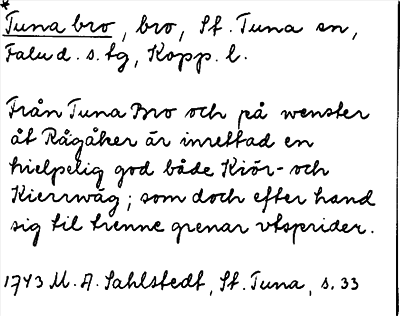 *
Tuna bro, bro, St. Tuna sn,
Falu d. s. tg, Kopp. l.
Från Tuna Bro och på wenster
åt Rågåker är inrettad en
hielpelig god både Kiör- och
Kierrwäg; som doch efter hand
sig til trenne grenar vtsprider.
1743 M. A. Sahlstedt, St. Tuna, s. 33